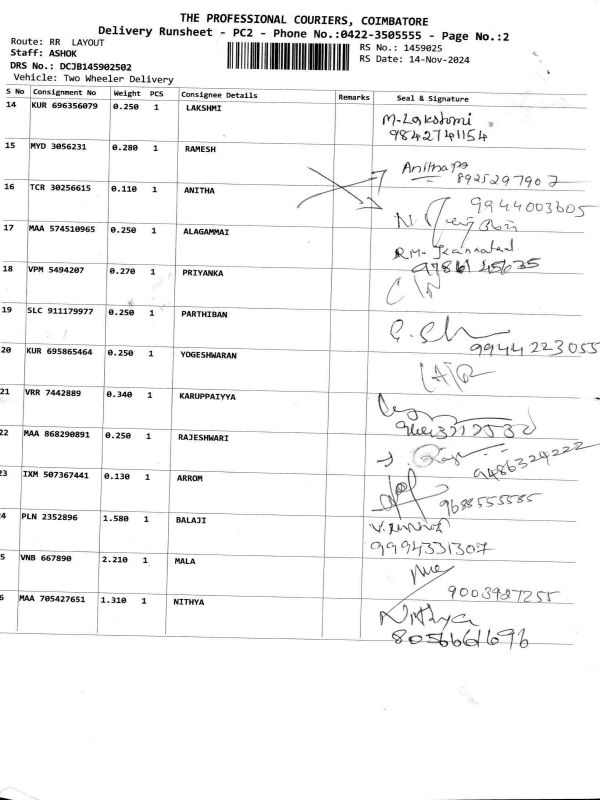 THE PROFESSIONAL COURIERS, COIMBATORE
Delivery Runsheet - PC2 - Phone No.:0422-3505555 - Page No.:2
Route: RR LAYOUT
Staff: ASHOK
DRS No.: DCJB145902502
Vehicle: Two Wheeler Delivery
RS No.: 1459025
RS Date: 14-Nov-2024
S No Consignment No Weight PCS Consignee Details Remarks Seal & Signature
14 KUR 696356079 0.250 1 LAKSHMI
M-Lakshmi
9842741154
15 MYD 3056231 0.280 1 RAMESH
Anitha
8925297907
16 TCR 30256615 0.110 1 ANITHA
9944003605
17 MAA 574510965 0.250 1 ALAGAMMAI
RM-
9786145635
18 VPM 5494207 0.270 1 PRIYANKA
19 SLC 911179977 0.250 1 PARTHIBAN
9944223055
20 KUR 695865464 0.250 1 YOGESHWARAN
21 VRR 7442889 0.340 1 KARUPPAIYYA
22 MAA 868290891 0.250 1 RAJESHWARI
9486324222
23 IXM 507367441 0.130 1 ARROM
9688555585
4 PLN 2352896 1.580 1 BALAJI
9994331307
5 VNB 667890 2.210 1 MALA
9003927255
6 MAA 705427651 1.310 1 NITHYA
Nithya
8056661696